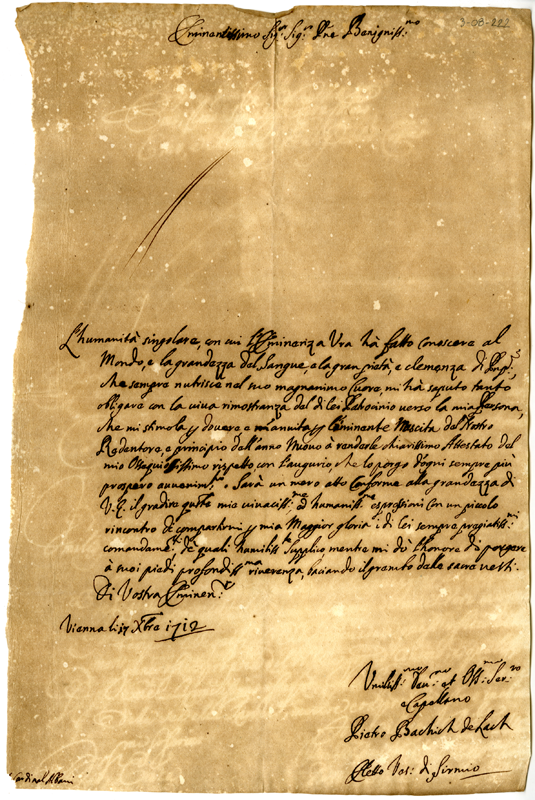 3-08-222
Eminentissimo Sig.r Sig.r Pne Benigniss:mo
L'humanità singolare, con cui l'Eminenza Vra hà fatto conoscere al
Mondo, e la grandezza del Sangue, e la gran pietà, e clemenza di
che sempre nutrisce nel suo magnanimo Cuore mi hà saputo tanto
obligare con la viva rimostranza del di lei Patrocinio verso la mia Persona,
che mi stimola p dovere e p l'Eminente Nascita del Nostro
Redentore, e principio dell'anno Nuovo à renderle chiarissimo Attestato del
mio Ossequiosissimo rispetto con l'augurio, che lo porgo d'ogni sempre più
prospero avvenim:to. Sarà un mero atto Conforme alla grandezza di
V.E. il gradire queste mie vivaciss:e et humaniss:me espressioni con un piccolo
rincontro de compartirmi p mia Maggior gloria i di lei sempre pregiatiss:mi
comandam:ti, de quali humiliss:te supplico, mentre mi dò l'honore di porgere
à suoi piedi profondiss:ma riverenza, baciando il gremito delle sacre vesti.
Di Vostra Eminen:za
Vienna li 17 Xbre 1712
Umiliss:mo Dev:mo et Oss:mo Ser:ro
e Capellano
Pietro Bachich de Lach
Eletto Ves: di Sirmio
Cardinal Albani